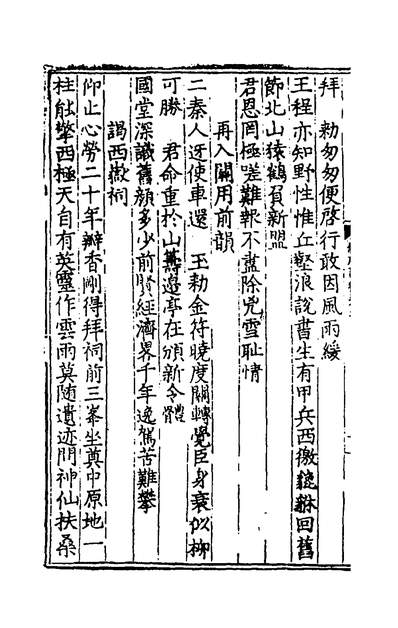 拜　勑匆匆便啓行敢因風雨緩
王程亦知野性惟丘壑浪説書生有甲兵西徼貔貅回舊
節北山猿鶴負新盟
君恩罔極嗟難報不盡除兇雪恥情
再入關用前韻
二秦人迓使車還　王勑金符曉度關轉覺臣身衰似柳
可勝　君命重於山籌邊亭在頒新令體
國堂深識舊顔多少前賢經濟畧千年逸駕苦難攀
謁西嶽祠
仰止心勞二十年瓣香剛得拜祠前三峯坐奠中原地一
柱能擎西極天自有英靈作雲雨莫随遺迹問神仙扶桑